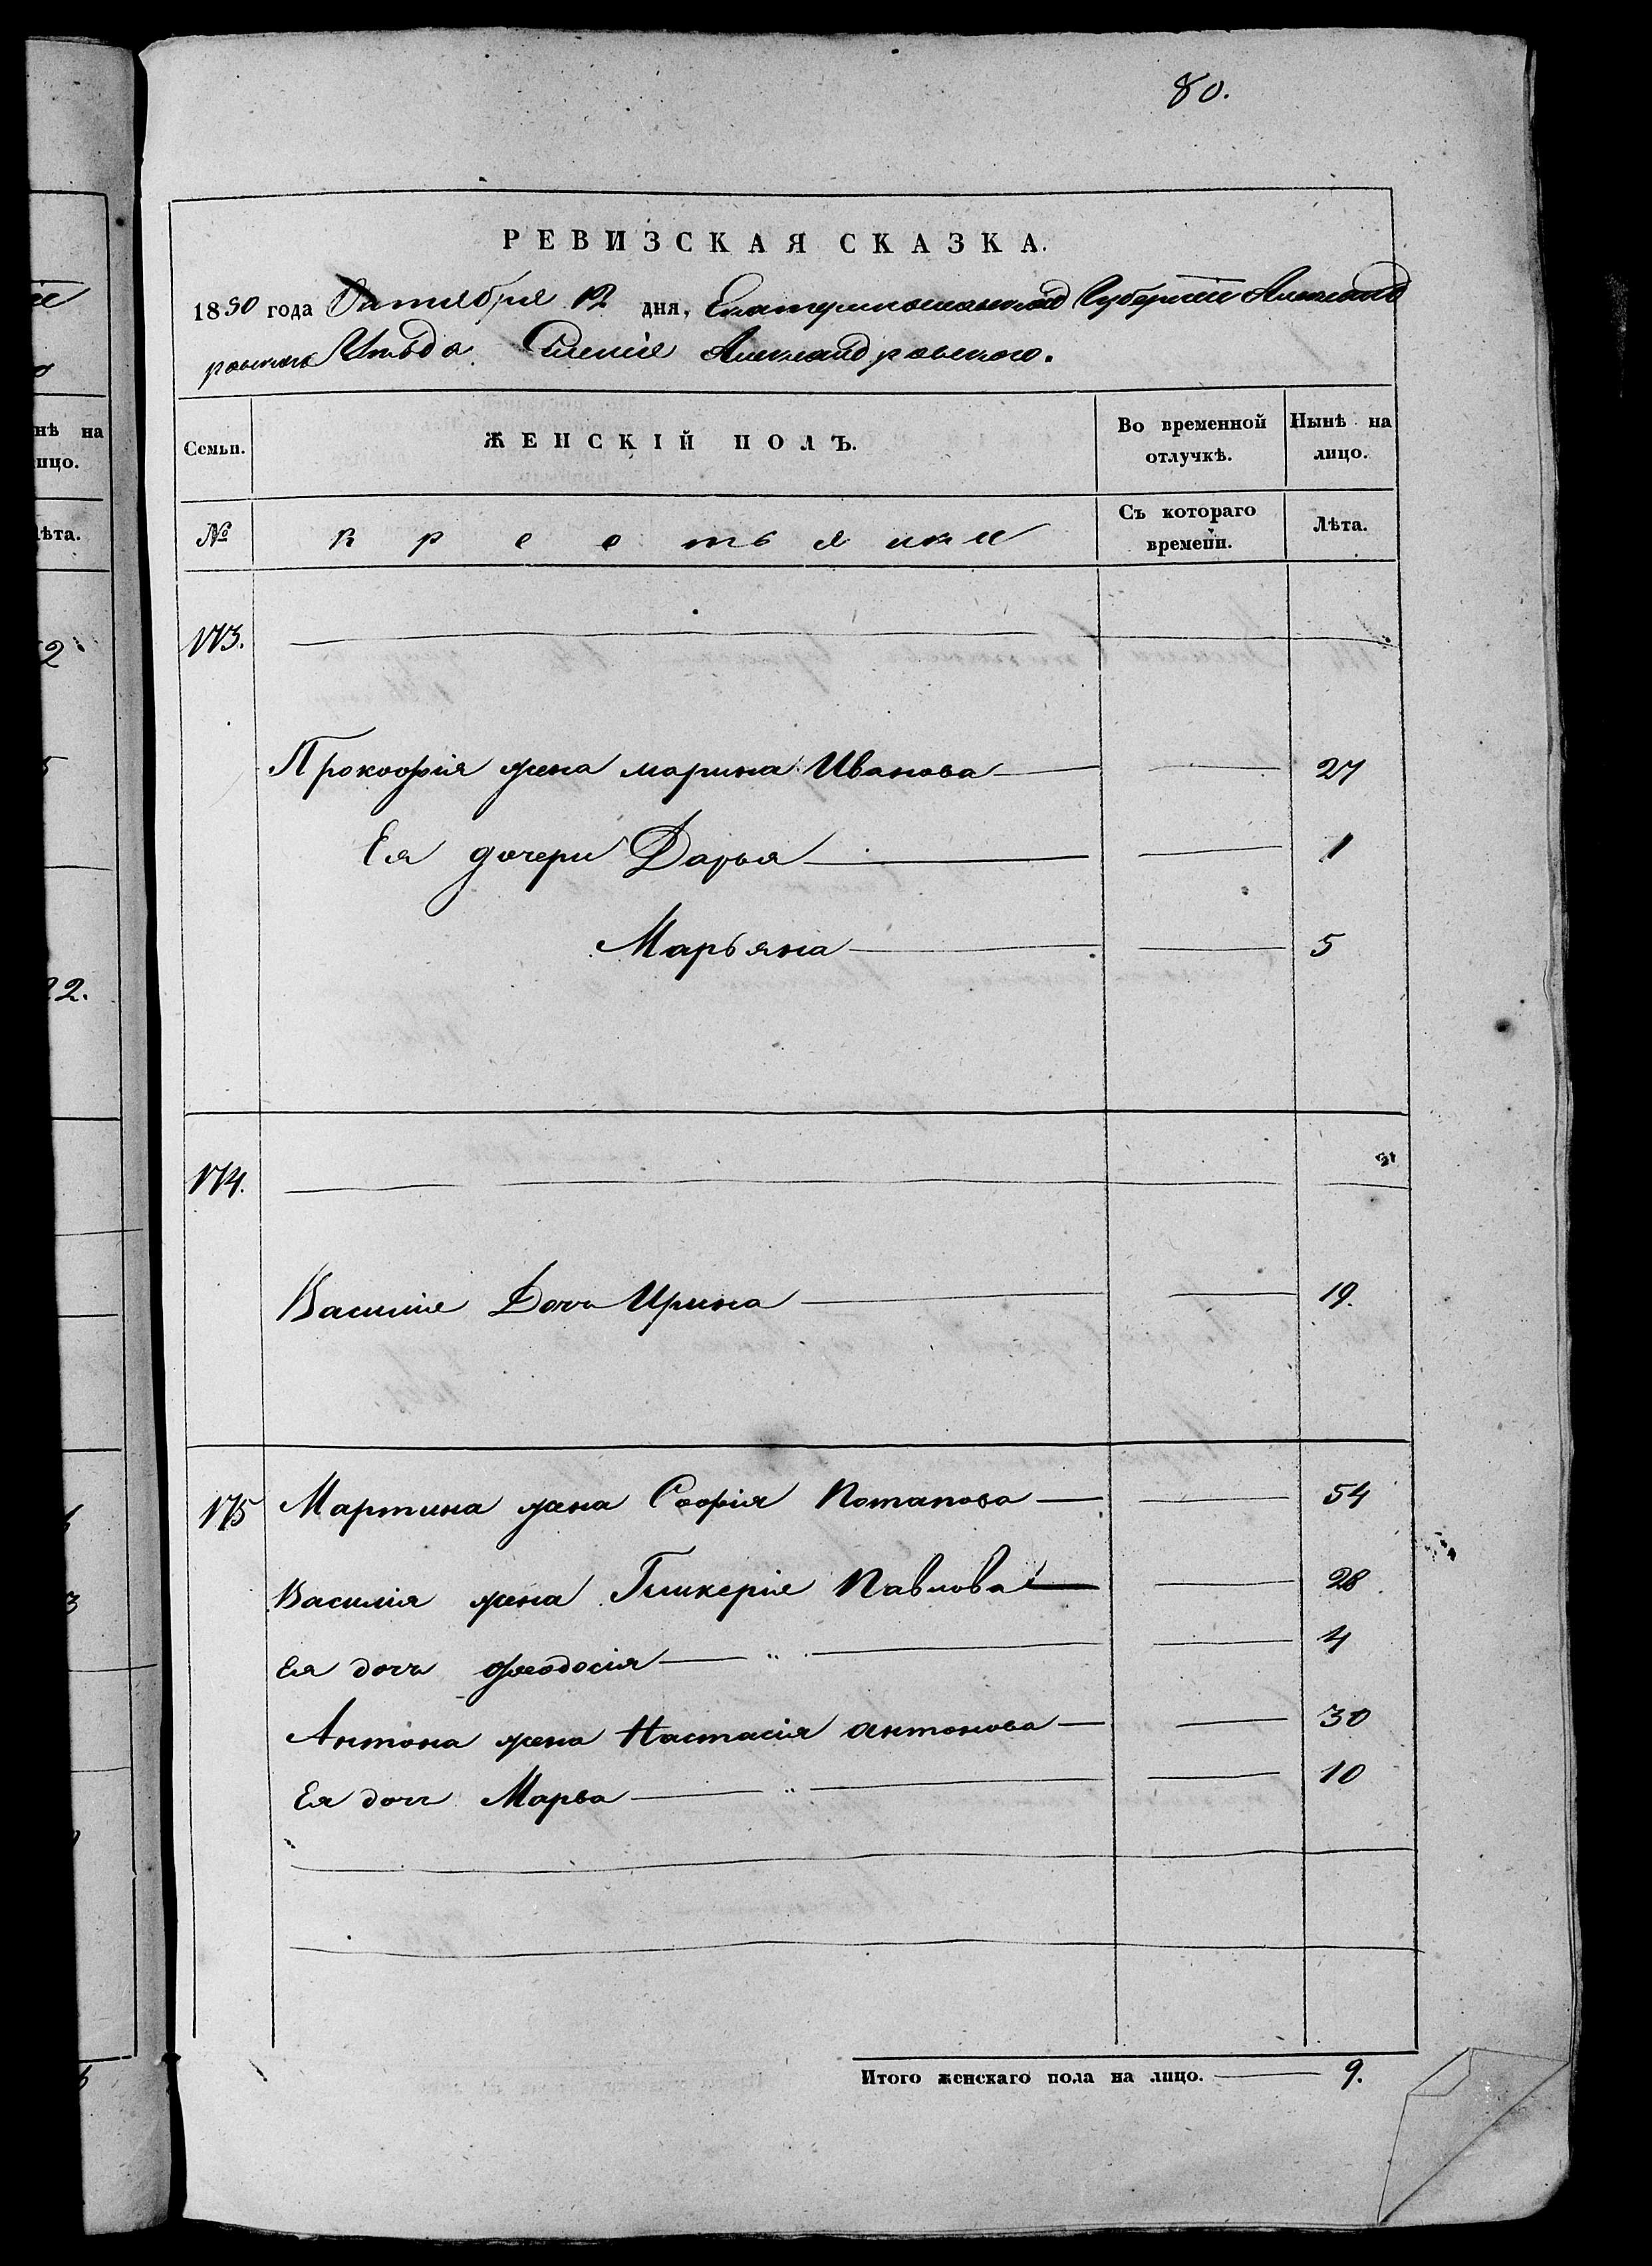 80.
РЕВИЗСКАЯ СКАЗКА.
1850 года Октября 12 дня, Екатеринославской Губернии Александ
ровского Уѣзда Селенія Александровского.
нѣ на
ицо.
Семьи.
ЖЕНСКІЙ ПОЛЪ.
Во временной отлучкѣ.
Нынѣ на лицо.
ѣта.
№
крестьянки
Съ котораго времени.
Лѣта.
173.
Прокофія жена марина Иванова 27
Ея дочери Дарья 1
Марьяна 5
22.
174.
Василія Дочь Ирина 19.
175 Мартина жана Софія Потапова 54
Василія жена Гликерія Павлова 28
Ея дочь Феодосія 4
Антона жена Настасія Антонова 30
Ея доч Марва 10
Итого женскаго пола на лицо. 9.